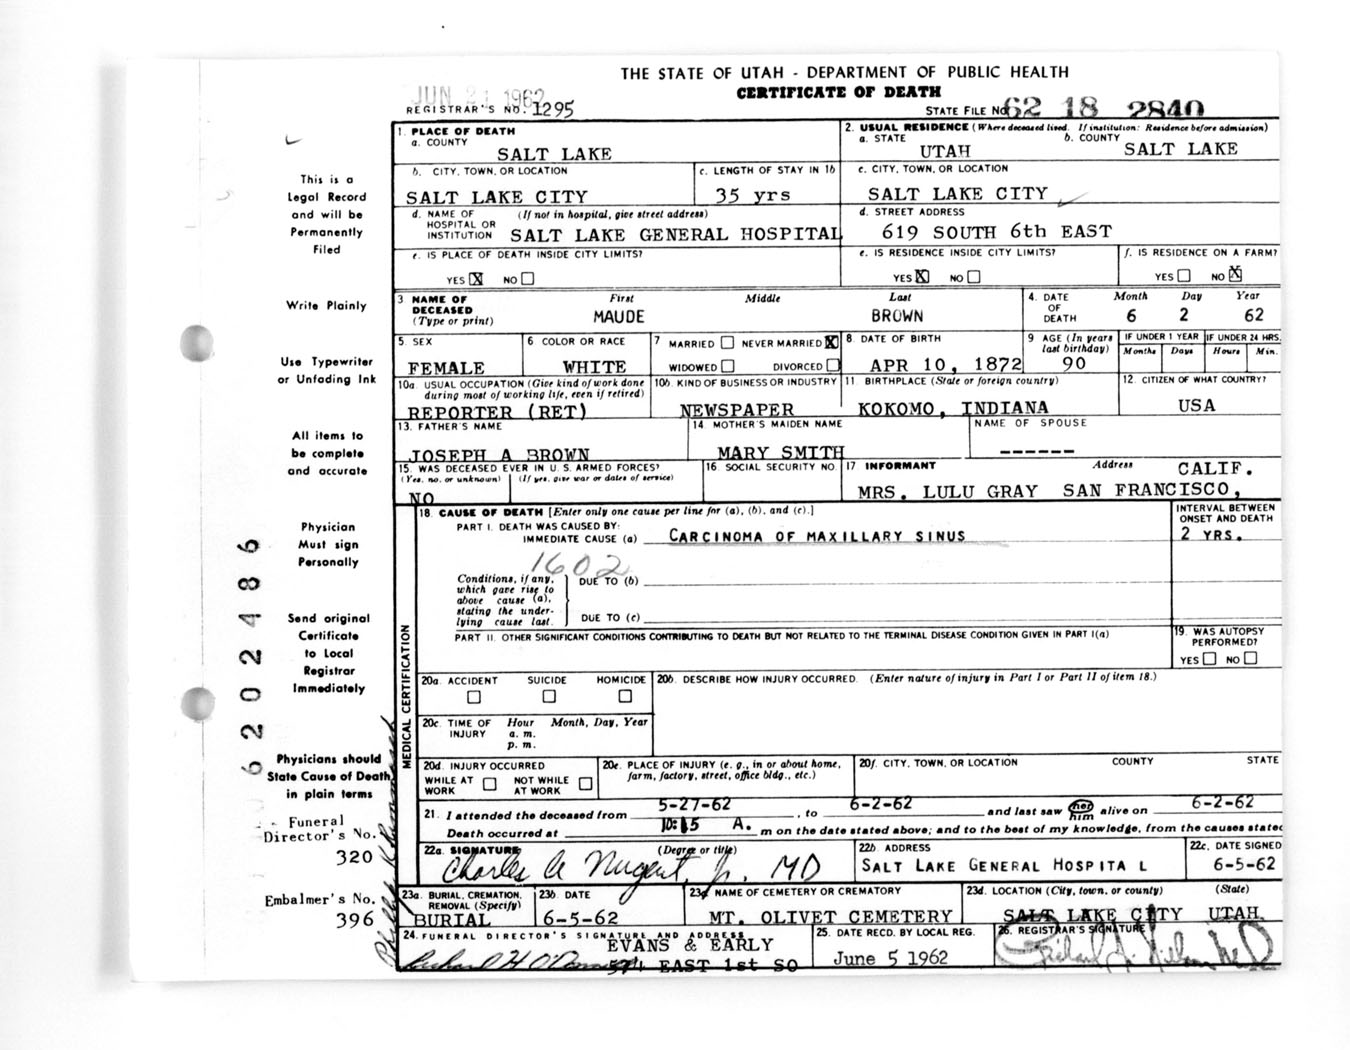 THE STATE OF UTAH - DEPARTMENT OF PUBLIC HEALTH
CERTIFICATE OF DEATH
JUN 21 1962
REGISTRAR'S NO. 1295
STATE FILE NO. 62 18 2840
1. PLACE OF DEATH
a. COUNTY
SALT LAKE
2. USUAL RESIDENCE (Where deceased lived. If institution: Residence before admission)
a. STATE
UTAH
b. COUNTY
SALT LAKE
b. CITY, TOWN, OR LOCATION
SALT LAKE CITY
c. LENGTH OF STAY IN 1b
35 yrs
c. CITY, TOWN, OR LOCATION
SALT LAKE CITY
d. NAME OF HOSPITAL OR INSTITUTION
(If not in hospital, give street address)
SALT LAKE GENERAL HOSPITAL
d. STREET ADDRESS
619 SOUTH 6th EAST
e. IS PLACE OF DEATH INSIDE CITY LIMITS?
YES X NO
e. IS RESIDENCE INSIDE CITY LIMITS?
YES X NO
f. IS RESIDENCE ON A FARM?
YES NO X
3 NAME OF DECEASED (Type or print)
First Middle Last
MAUDE BROWN
4. DATE OF DEATH
Month Day Year
6 2 62
5. SEX
FEMALE
6 COLOR OR RACE
WHITE
7 MARRIED NEVER MARRIED X
WIDOWED DIVORCED
8. DATE OF BIRTH
APR 10, 1872
9 AGE (In years last birthday)
90
IF UNDER 1 YEAR
Months Days
IF UNDER 24 HRS.
Hours Min.
10a. USUAL OCCUPATION (Give kind of work done during most of working life, even if retired)
REPORTER (RET)
10b. KIND OF BUSINESS OR INDUSTRY
NEWSPAPER
11. BIRTHPLACE (State or foreign country)
KOKOMO, INDIANA
12. CITIZEN OF WHAT COUNTRY?
USA
13. FATHER'S NAME
JOSEPH A BROWN
14. MOTHER'S MAIDEN NAME
MARY SMITH
NAME OF SPOUSE
------
15. WAS DECEASED EVER IN U.S. ARMED FORCES?
(Yes, no, or unknown) (If yes, give war or dates of service)
NO
16. SOCIAL SECURITY NO.
17. INFORMANT Address
CALIF.
MRS. LULU GRAY SAN FRANCISCO,
MEDICAL CERTIFICATION
18. CAUSE OF DEATH [Enter only one cause per line for (a), (b), and (c).]
PART I. DEATH WAS CAUSED BY:
IMMEDIATE CAUSE (a) CARCINOMA OF MAXILLARY SINUS
INTERVAL BETWEEN ONSET AND DEATH
2 YRS.
1602
Conditions, if any, which gave rise to above cause (a), stating the underlying cause last.
DUE TO (b)
DUE TO (c)
PART II. OTHER SIGNIFICANT CONDITIONS CONTRIBUTING TO DEATH BUT NOT RELATED TO THE TERMINAL DISEASE CONDITION GIVEN IN PART I(a)
19. WAS AUTOPSY PERFORMED?
YES NO
20a. ACCIDENT SUICIDE HOMICIDE
20b. DESCRIBE HOW INJURY OCCURRED. (Enter nature of injury in Part I or Part II of item 18.)
20c. TIME OF INJURY
Hour Month, Day, Year
a. m.
p. m.
20d. INJURY OCCURRED
WHILE AT WORK NOT WHILE AT WORK
20e. PLACE OF INJURY (e. g., in or about home, farm, factory, street, office bldg., etc.)
20f. CITY, TOWN, OR LOCATION COUNTY STATE
21. I attended the deceased from 5-27-62, to 6-2-62 and last saw her him alive on 6-2-62
Death occurred at 10:15 A. m on the date stated above; and to the best of my knowledge, from the causes stated
22a. SIGNATURE (Degree or title)
Charles A Nugent, Jr. MD
22b. ADDRESS
SALT LAKE GENERAL HOSPITA L
22c. DATE SIGNED
6-5-62
23a. BURIAL, CREMATION, REMOVAL (Specify)
BURIAL
23b. DATE
6-5-62
23c. NAME OF CEMETERY OR CREMATORY
MT. OLIVET CEMETERY
23d. LOCATION (City, town, or county) (State)
SALT LAKE CITY UTAH
24. FUNERAL DIRECTOR'S SIGNATURE AND ADDRESS
EVANS & EARLY
574 EAST 1st SO
25. DATE RECD. BY LOCAL REG.
June 5 1962
26. REGISTRAR'S SIGNATURE
This is a
Legal Record
and will be
Permanently
Filed
Write Plainly
Use Typewriter
or Unfading Ink
All items to
be complete
and accurate
Physician
Must sign
Personally
Send original
Certificate
to Local
Registrar
Immediately
Physicians should
State Cause of Death
in plain terms
Funeral
Director's No.
320
Embalmer's No.
396
6202486